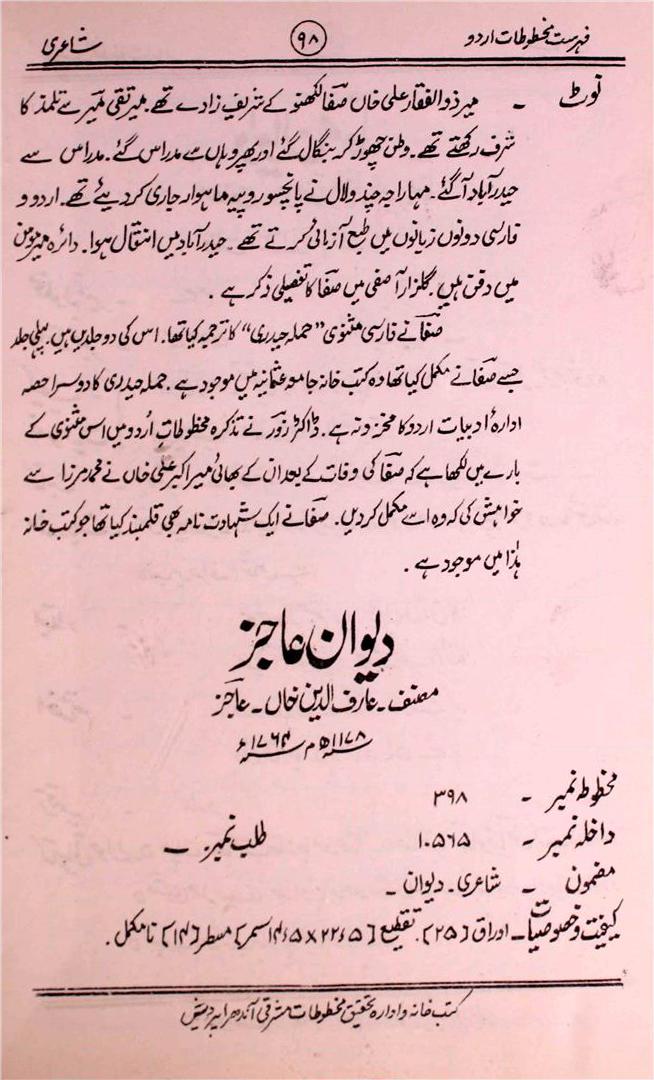 فہرست مخطوطات اردو ۹۸ شاعری
نوٹ ۔ میر ذوالفقار علی خاں صفا لکھنو کے شریف زادے تھے۔ میر تقی میر سے تلمذ کا
شرف رکھتے تھے۔ وطن چھوڑ کر بنگال گئے اور پھر وہاں سے مدراس گئے۔ مدراس سے
حیدرآباد آگئے۔ مہاراجہ چندولال نے پانچسو روپیہ ماہوار جاری کر دیئے تھے۔ اردو و
فارسی دونوں زبانوں میں طبع آزمائی کرتے تھے۔ حیدرآباد میں انتقال ہوا۔ دائرہ میر مومن
میں دفن ہیں۔ گلزار آصفی میں صفا کا تفصیلی ذکر ہے۔
صفا نے فارسی مثنوی "حملہ حیدری" کا ترجمہ کیا تھا۔ اس کی دو جلدیں ہیں۔ پہلی جلد
جسے صفا نے مکمل کیا تھا وہ کتب خانہ جامعہ عثمانیہ میں موجود ہے۔ حملہ حیدری کا دوسرا حصہ
ادارۂ ادبیات اردو کا مخزونہ ہے۔ ڈاکٹر زور نے تذکرہ مخطوطات اُردو میں اس مثنوی کے
بارے میں لکھا ہے کہ صفا کی وفات کے بعد ان کے بھائی میر اکبر علی خاں نے محمد مرزا سے
خواہش کی کہ وہ اسے مکمل کردیں۔ صفا نے ایک شہادت نامہ بھی قلمبند کیا تھا جو کتب خانہ
ہٰذا میں موجود ہے۔
دیوان عاجز
مصنف ۔ عارف الدین خاں ۔ عاجز
سنہ ۱۱۷۸ھ م سنہ ۱۷۶۴ء
مخطوطہ نمبر ۔ ۳۹۸
داخلہ نمبر ۔ ۱۰۵۶۵ طلب نمبر ۔ —
مضمون ۔ شاعری ۔ دیوان ۔
کیفیت و خصوصیات ۔ اوراق [۲۵]۔ تقطیع [۲۲٫۵ × ۱۴٫۵ سم] مسطر [۱۴] نامکمل۔
کتب خانہ و ادارہ تحقیق مخطوطات مشرقی آندھرا پردیش